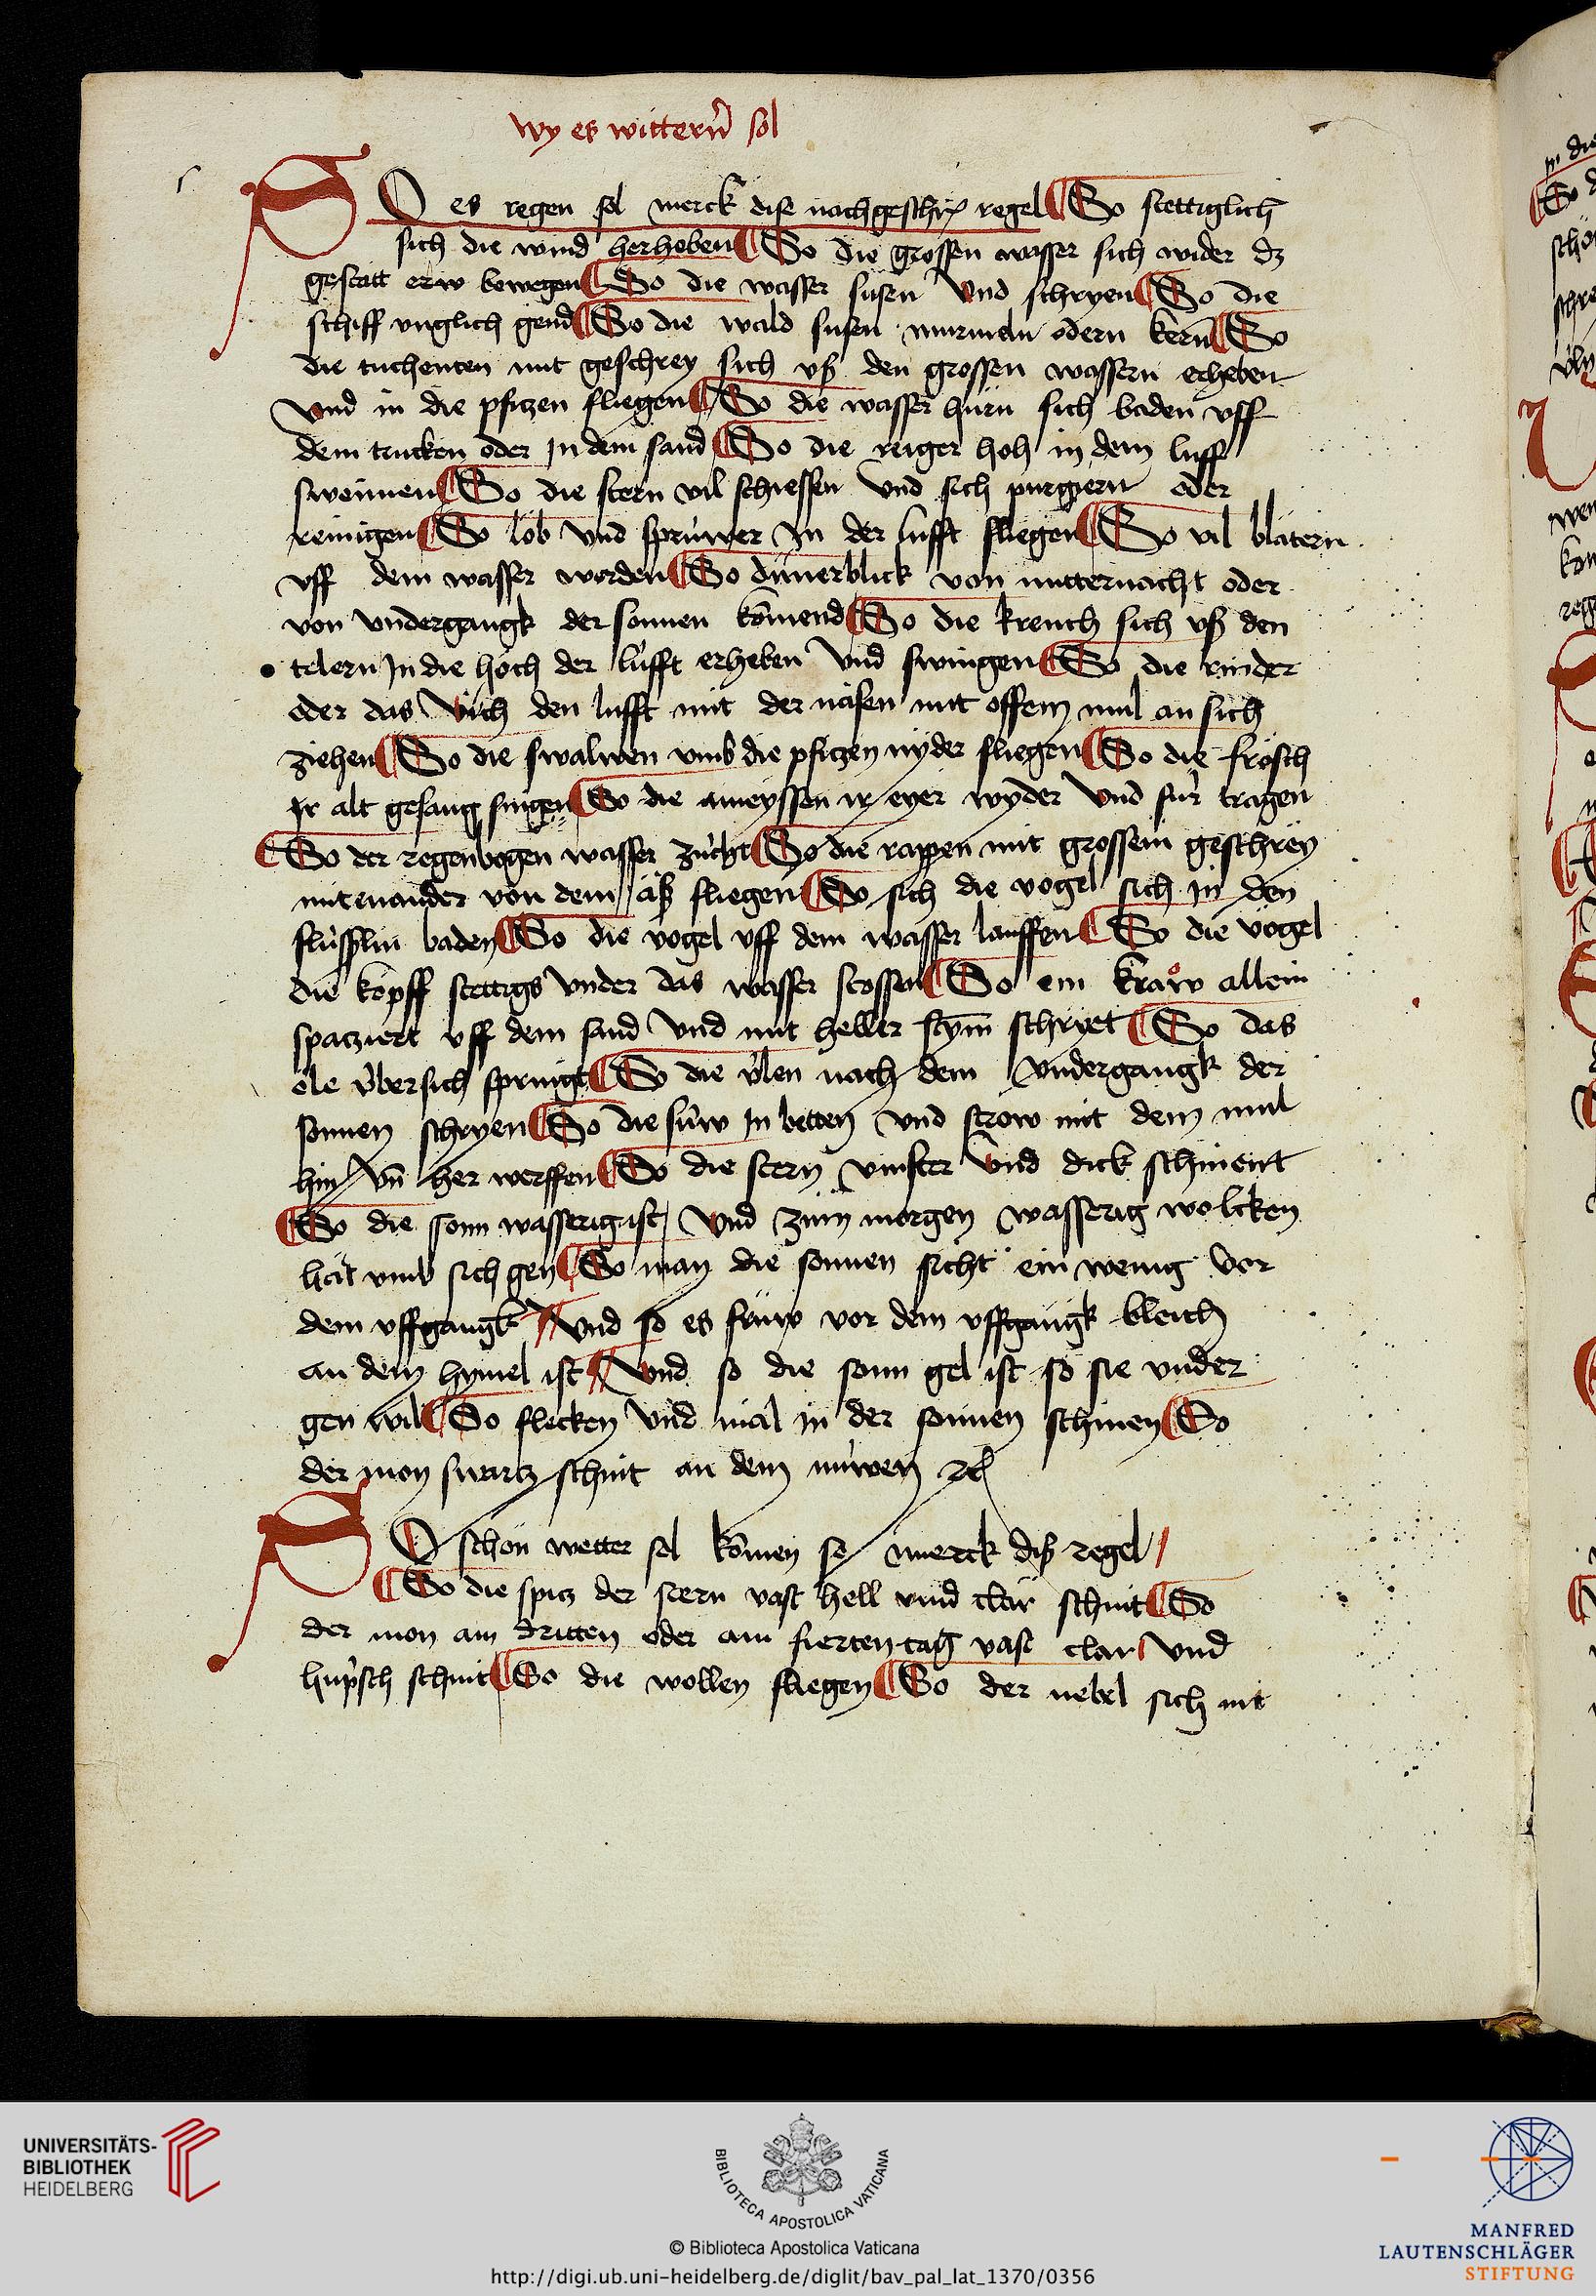 wy es wittern̄ sol
SO es regen sol merck dise nachgeschr regel ¶ So stettiglich
sich die wind herheben ¶ So die grossen wasser sich wider dz
gestatt bewegen ¶ So die wasser susen vnd schryen ¶ So die
schiff vnglich gend ¶ So die wald susen murmeln odern ¶ So
die tuchenten mit geschrey sich vß den grossen wassern erheben
vnd in die pfitzen fliegen ¶ So die wasser hürn sich baden vff
dem trucken oder jn dem sand ¶ So die reiger hoh in dem lufft
sweimen ¶ So die stern vil schiessen vnd sich purgiern oder
reinigen ¶ So löb vnd sprüwer jn der lufft fliegen ¶ So vil blatern
vff dem wasser werden ¶ So dunerblick von mitternacht oder
von vndergangk der sonnen kōmend ¶ So die krench sich vß den
telern jn die höch der lüfft erheben vnd swingen ¶ So die rinder
oder das vich den lufft mit der näsen mit offem mul an sich
ziehen ¶ So die swalwen vmb die pfitzen nyder fliegen ¶ So die frösch
jr alt gesang singen ¶ So die ameyssen ir eyer wyder vnd für tragen
¶ So der regenbogen wasser zücht ¶ So die rappen mit grossem geschrey
miteinander von dem äß fliegen ¶ So sich die vogel sich jn den
flüsslin baden ¶ So die vogel vff dem wasser lauffen ¶ So die vögel
die köpff stettigs vnder das wasser stossen ¶ So ein kraẘ allein
spatziert vff dem sand vnd mit heller stym̄ schryet ¶ So das
ole übersich springt ¶ So die vlen nach dem vndergangk der
sonnen schryen ¶ So die süw jn betten vnd strow mit dem mul
hin vn̄ her werffen ¶ So die stern vinster vnd dick schinent
¶ So die sonn wasserig ist vnd zum morgen wasserig wolcken
hät vmb sich gen ¶ So man die sonnen sicht ein wenig vor
dem vffgangk // vnd so es früw vor dem vffgangk bleich
an dem hymel ist // vnd so die sonn gel ist so sie vnder
gen wil ¶ So flecken vnd mäl in der sonnen schinen ¶ So
der mon swartz schint an dem nüwen ꝛc
SO schön wetter sol kōmen so merck diß regel /
¶ So die spitz der stern vast hell vnd clar schint ¶ So
der mon am dritten oder am fierten tag vast clar vnd
hüpsch schint ¶ So die wollen fliegen ¶ So der nebel sich nit
UNIVERSITÄTS-
BIBLIOTHEK
HEIDELBERG
BIBLIOTECA APOSTOLICA VATICANA
© Biblioteca Apostolica Vaticana
http://digi.ub.uni-heidelberg.de/diglit/bav_pal_lat_1370/0356
MANFRED
LAUTENSCHLÄGER
STIFTUNG